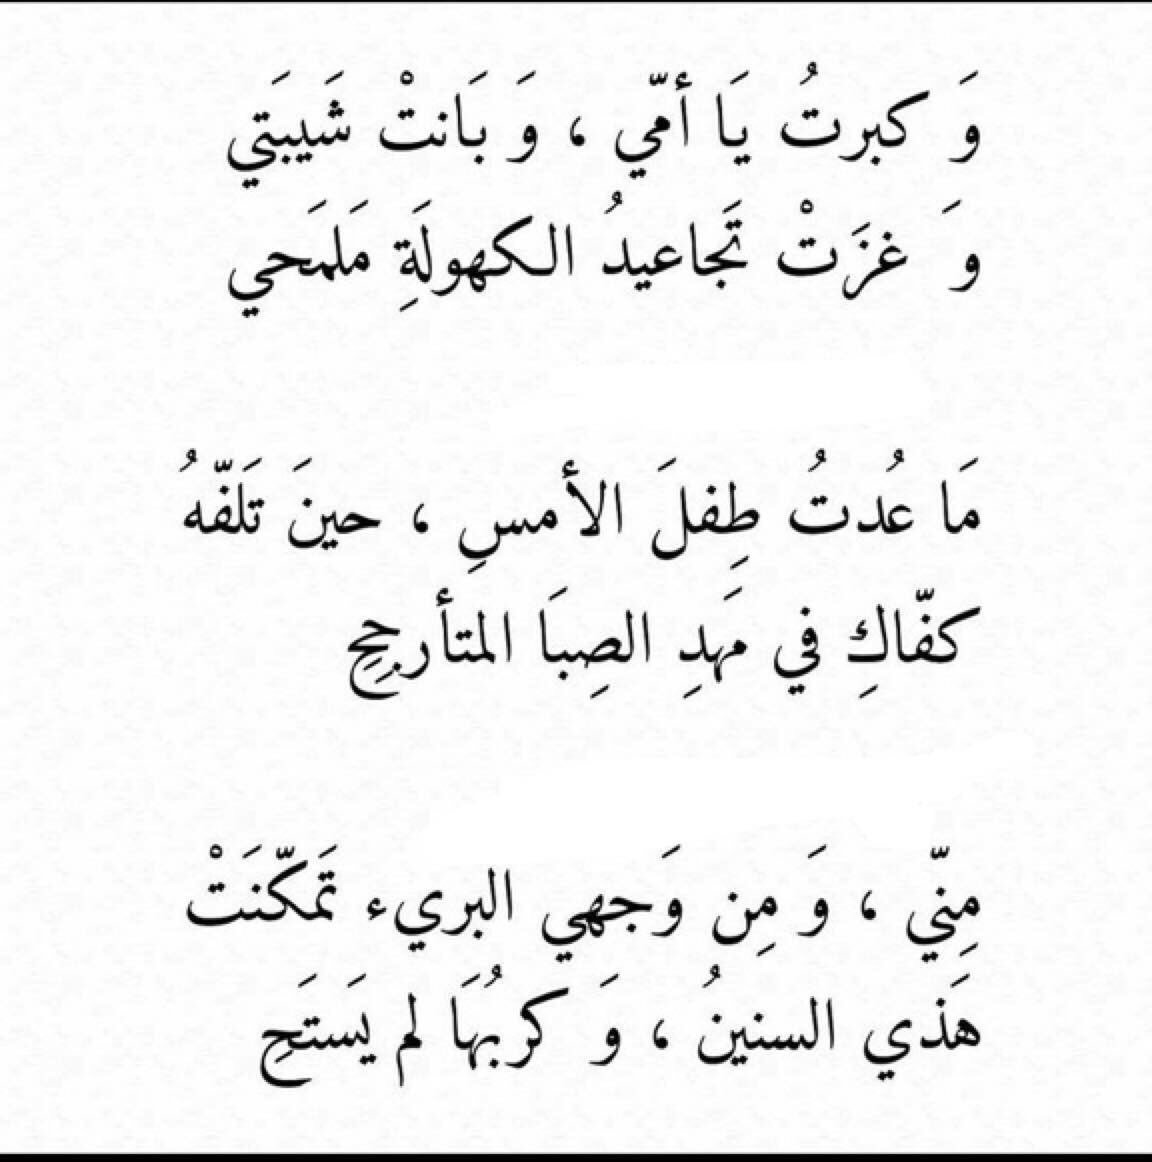 وَ كبرتُ يَا أمّي ، وَ بَانتْ شَيبَتي
وَ غزَتْ تَجاعيدُ الكهولَةِ مَلمَحي
مَا عُدتُ طِفلَ الأمسِ ، حينَ تَلفّهُ
كفّاكِ في مَهدِ الصِبَا المتأرجِحِ
مِنّي ، وَ مِن وَجهي البريء تَمكّنَتْ
هَذي السنينُ ، وَ كربُهَا لم يَستَحِ